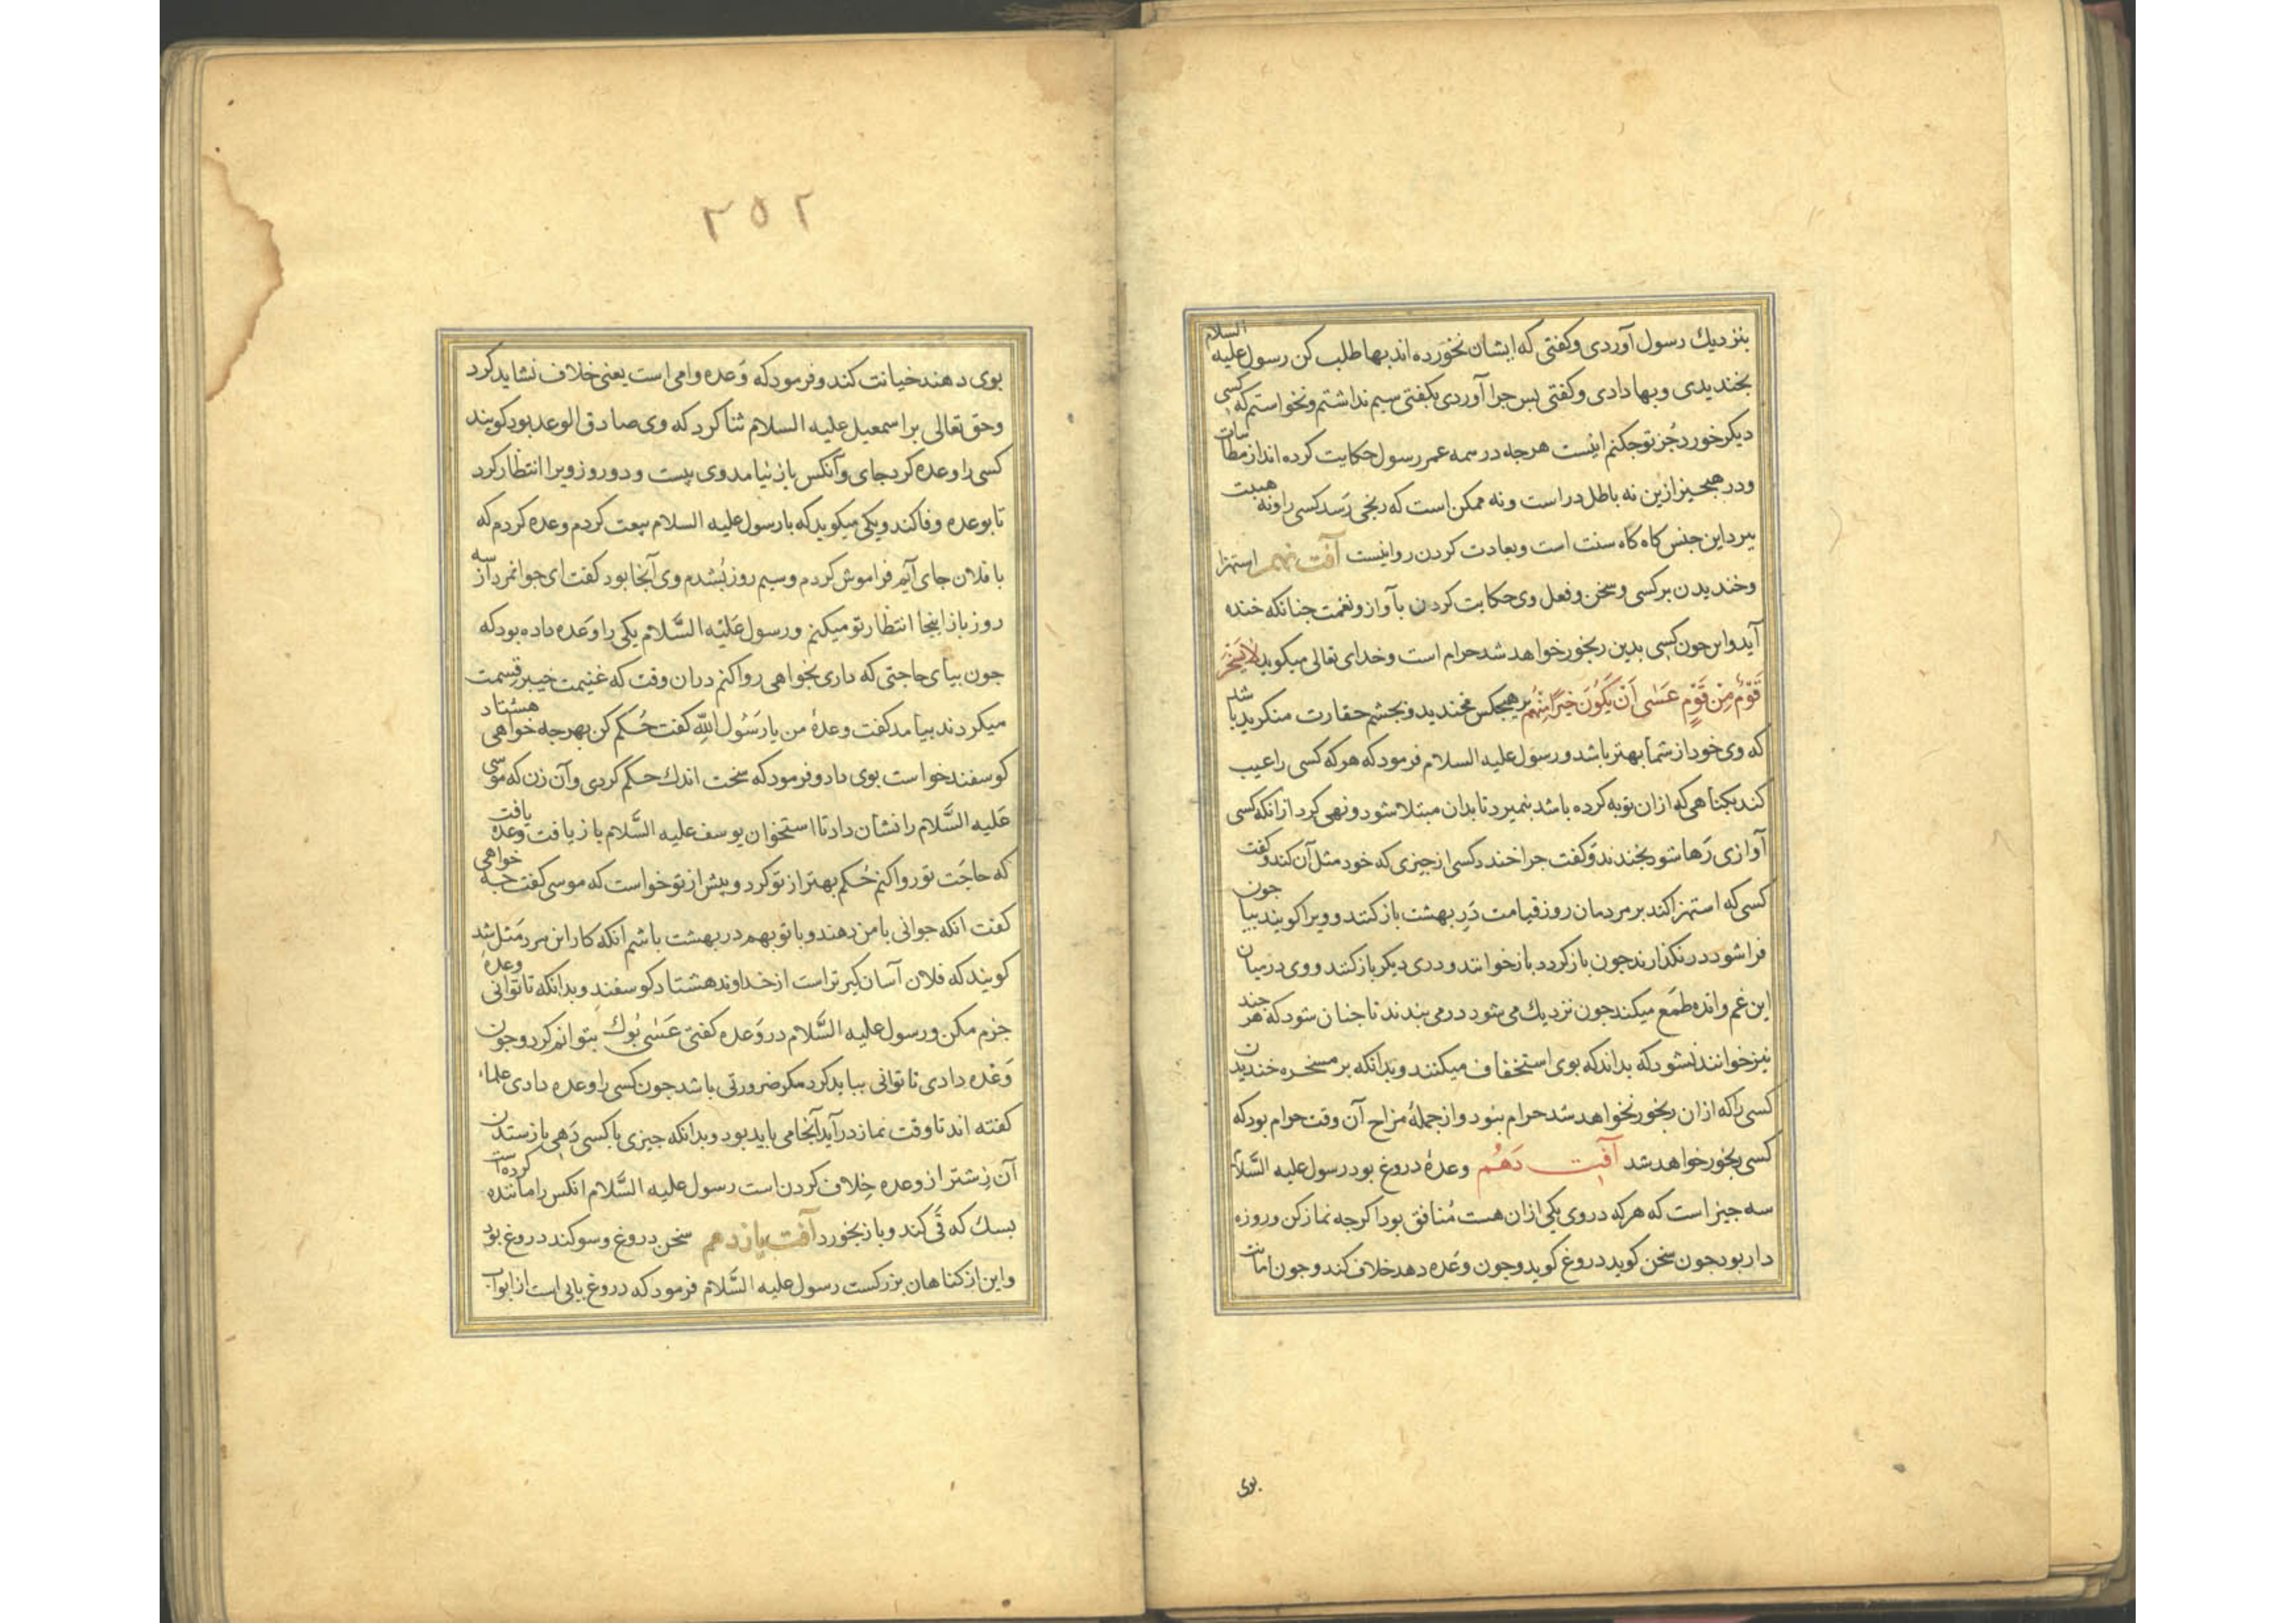 بنزدیك رسول آوردی وکفتی که ایشان نخورده اند بها طلب کن رسول علیه السلام
بخندیدی وبها دادی وکفتی بس جرا آوردی بکفتی سیم نداشتم ونخواستم که کسی
دیکر خورد جُز تو جکنم اینست هرجه در همه عمر رسول حکایت کرده اند از مطایبات
ودر هیجیز ازین نه باطل در است ونه ممکن است که رنجی رَسد کسی را ونه هیبت
ببرد این جنس کاه کاه سنت است وبعادت کردن روا نیست آفت نهم استهزا
وخندیدن بر کسی وسخن وفعل وی حکایت کردن بآواز ونغمت جنانکه خنده
آید واین جون کسی بدین رنجور خواهد شد حرام است وخدای تعالی میکوید لا یَسْخَر
قَوْمٌ مِن قَوْمٍ عَسٰی اَنْ یَکُونَ خَیْرًا مِنْهُم بر هیجکس مخندید وبجشم حقارت منکرید باشد
که وی خود از شما بهتر باشد ورسول علیه السلام فرمود که هر که کسی را عیب
کند بکناهی که ازان توبه کرده باشد بنمیرد تا بدان مبتلا شود ونهی کرد ازانکه کسی
آوازی رَها شود بخندند وکفت جرا خندد کسی از جیزی که خود مثل آن کند وکفت
کسی که استهزا کند بر مردمان روز قیامت دَرِ بهشت باز کنند وویرا کویند بیا جون
فرا شود در نکذارند جون باز کردد باز خوانند ودری دیکر باز کنند ووی در میان
این غم وانده طمَع میکند جون نزدیك می شود در می بندند تا جنان شود که هر جند
نیز خوانند نشود که بداند که بوی استخفاف میکنند وبدانکه بر مسخره خندیدن
کسی را که ازان رنجور نخواهد شد حرام بنود واز جملهٔ مزاح آن وقت حرام بود که
کسی رنجور خواهد شد آفت دَهُم وعدهٔ دروغ بود رسول علیه السَّلام
سه جیز است که هر که در وی یکی ازان هست مُنافق بود اکرجه نماز کن وروزه
دار بود جون سخن کوید دروغ کوید وجون وعَده دهد خلاف کند وجون امانت
بوی
۲۵۲
بوی دهند خیانت کند وفرمود که وَعده وامی است یعنی خلاف نشاید کرد
وحق تعالی بر اسمعیل علیه السلام ثنا کرد که وی صادق الوعد بود کویند
کسی را وعده کرد جای وآنکس باز نیامد وی بیست ودو روز ویرا انتظار کرد
تا بوعده وفا کند ویکی میکوید که با رسول علیه السلام بیعت کردم وعده کردم که
با فلان جای آیم فراموش کردم وسیم روز بُشدم وی آنجا بود کفت ای جوانمرد از سه
روز باز اینجا انتظار تو میکنم ورسول عَلیْه السَّلام یکی را وَعده داده بود که
جون بیای حاجتی که داری بخواهی روا کنم دران وقت که غنیمت خیبر قسمت
میکردند بیامد کفت وعدهٔ من یا رَسُول اللّٰه کفت حُکم کن بهرجه خواهی هشتاد
کوسفند خواست بوی داد وفرمود که سخت اندك حکم کردی وآن زن که موسی
عَلیه السَّلام را نشان داد تا استخوان یوسف علیه السَّلام باز یافت وعده یافت
که حاجَت تو روا کنم حُکم بهتر از تو کرد وبیش از تو خواست که موسی کفت جه خواهی
کفت انکه جوانی با من دهند وبا تو بهم در بهشت باشم انکه کار این مرد مَثل شد
کویند که فلان آسان کیر تر است از خداوند هشتاد کوسفند وبدانکه تا توانی وعده
جزم مکن ورسول علیه السَّلام در وَعده کفتی عَسٰی بُوك بتوانم کرد وجون
وَعْده دادی تا توانی بباید کرد مکر ضرورتی باشد جون کسی را وعده دادی علماء
کفته اند تا وقت نماز در آید آنجا می باید بود وبدانکه جیزی با کسی دَهی باز ستدن
آن زشتر از وعده خلاف کردن است رسول علیه السَّلام انکس را ماننده کرده است
بسك که قَی کند وباز بخورد آفت یازدهم سخن دروغ وسوکند دروغ بود
واین از کناهان بزرکست رسول علیه السَّلام فرمود که دروغ بابی است از ابواب